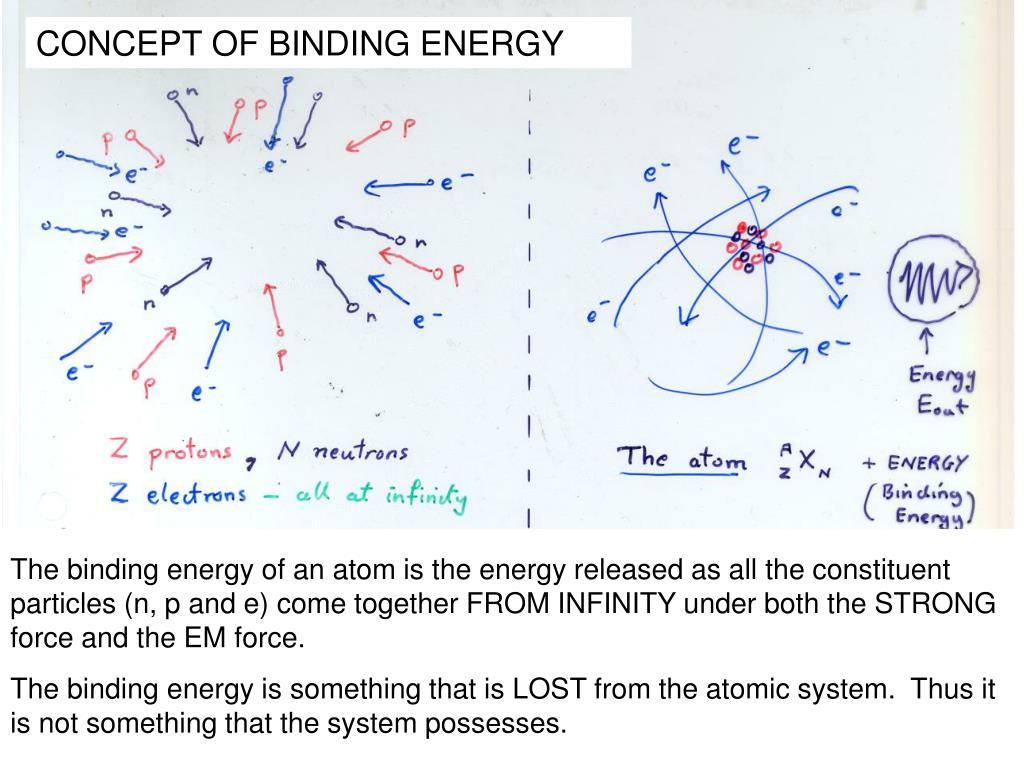 CONCEPT OF BINDING ENERGY
n
p
p
e⁻
p
e⁻
e⁻
n
e⁻
n
p
p
n
e⁻
n
p
e⁻
p
e⁻
Z protons, N neutrons
Z electrons – all at infinity
e⁻
e⁻
e⁻
e⁻
e⁻
e⁻
Energy
Eout
The atom ᴬ_Z X_N + ENERGY
(Binding
Energy)
The binding energy of an atom is the energy released as all the constituent
particles (n, p and e) come together FROM INFINITY under both the STRONG
force and the EM force.
The binding energy is something that is LOST from the atomic system.  Thus it
is not something that the system possesses.